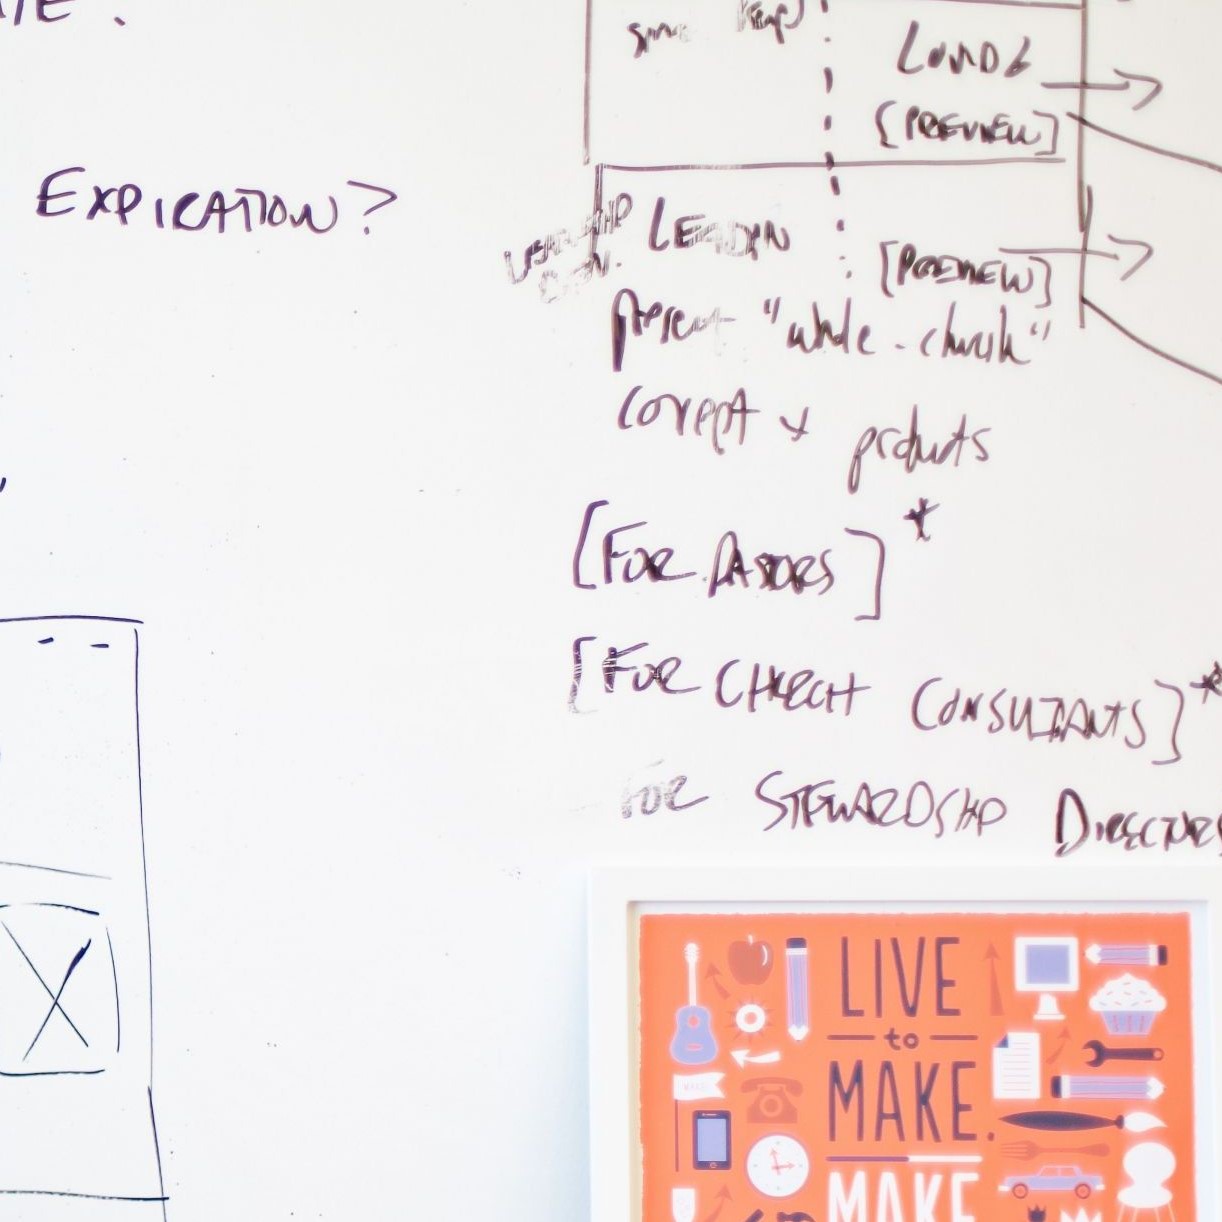 EXPIRATION?
[PREVIEW]
[PREVIEW]
present "whole-church"
concept + products
[FOR PASTORS]*
[FOR CHURCH CONSULTANTS]*
FOR STEWARDSHIP DIRECTORS
LIVE
to
MAKE.
MAKE